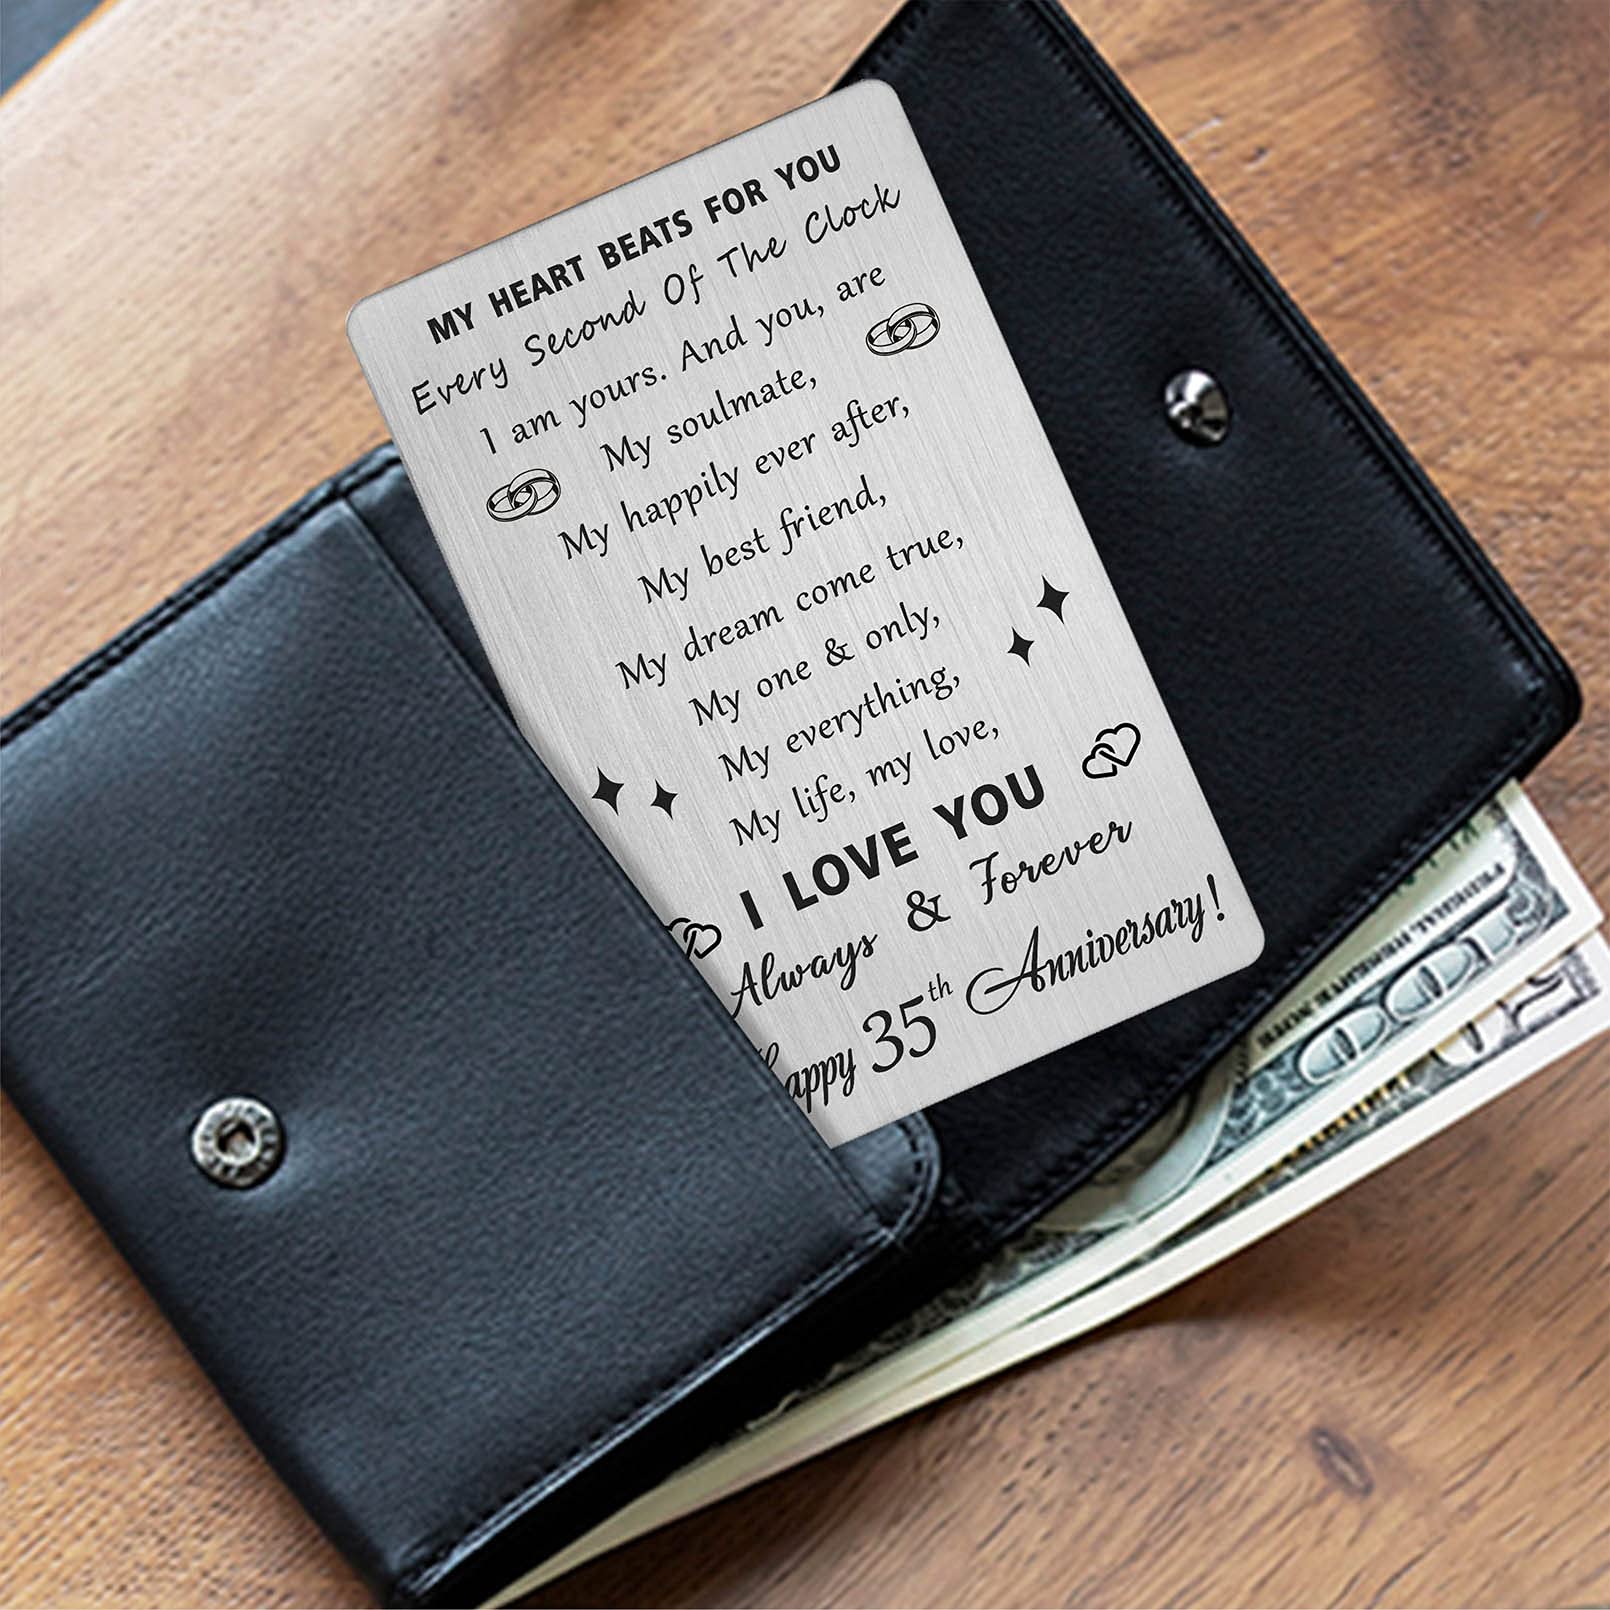 MY HEART BEATS FOR YOU
Every Second Of The Clock
I am yours. And you, are
My soulmate,
My happily ever after,
My best friend,
My dream come true,
My one & only,
My everything,
My life, my love,
I LOVE YOU
Always & Forever
Happy 35th Anniversary!
100